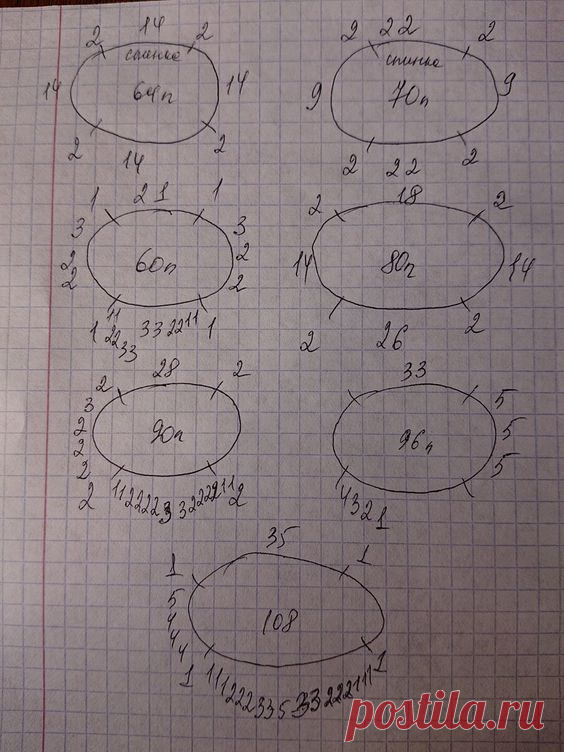 14 22
2 2 2 2
спинка спинка
14 64п 14 9 70п 9
2 2 2 2
14 22
1 21 1 18
3 3 2 2
2 60п 2 14 80п 14
2 2
1 11 22 33 33 22 11 1 2 26 2
28 33
2 2 5
3
2 90п 96п 5
2
2 5
2 11 22 22 3 3 22 22 11 2 4 3 2 1
35
1 1
5
4 108
4
4
1 11 222 33 5 33 222 111 1
postila.ru